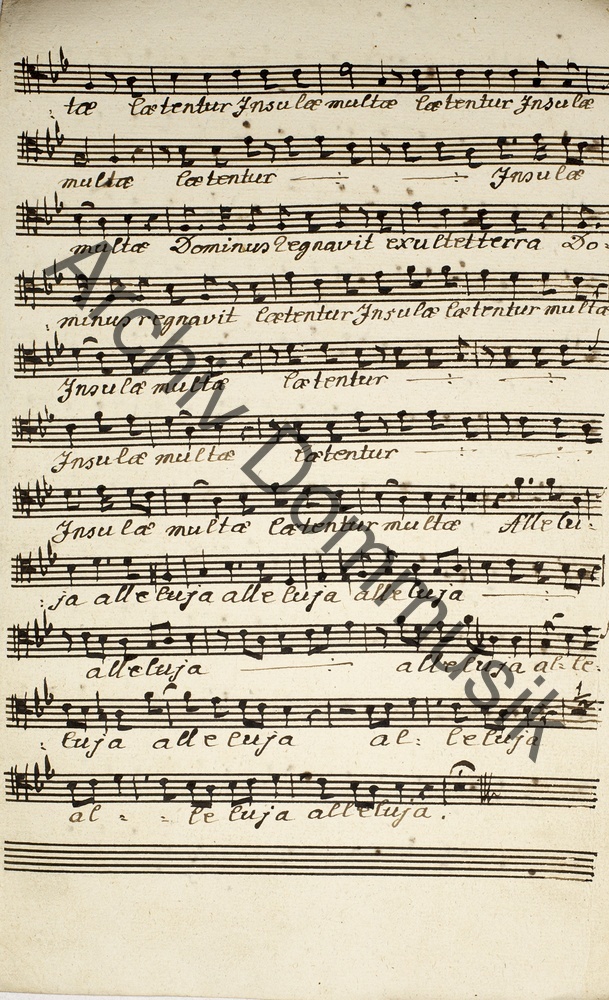 tæ lætentur Insulæ multæ lætentur Insulæ
multæ lætentur Insulæ
multæ Dominus regnavit exultet terra Do-
minus regnavit lætentur Insulæ lætentur multæ
Insulæ multæ lætentur
Insulæ multæ lætentur
Insulæ multæ lætentur multæ Allelu-
ja alleluja alleluja alleluja
alleluja alleluja al-le-
luja alleluja al- leluja
al- - leluja alleluja.
Archiv Dommusik